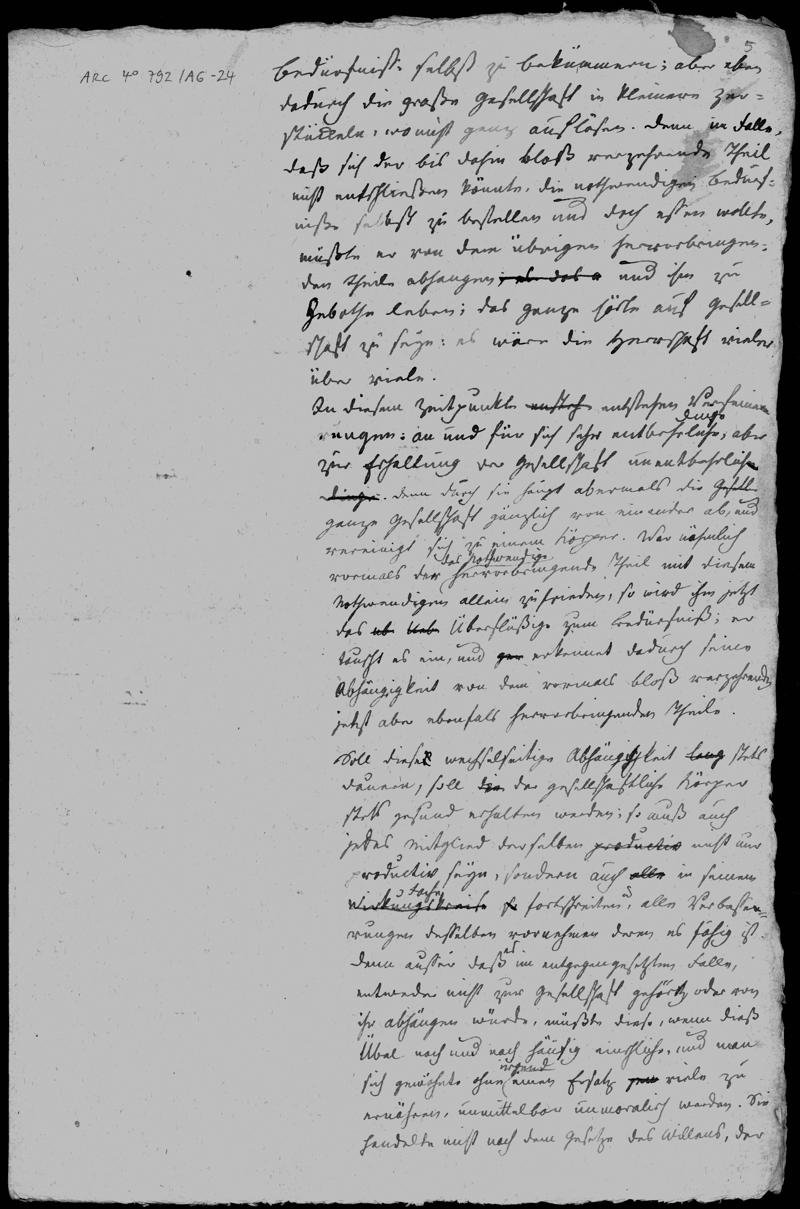 5
ARC 4° 792/A6-24
Bedürfniße selbst zu bekümmern; aber eben
dadurch die große Gesellschaft in kleinere zer=
stückeln, wo nicht ganz auflösen. Denn im Falle,
daß sich der bis dahin bloß verzehrende Theil
nicht entschließen könnte, die nothwendigen Bedürf=
niße selbst zu bestellen und doch essen wollte,
müßte er von dem übrigen hervorbringen=
den Theile abhangen, und ihm zu
Gebothe leben; das ganze hörte auf Gesell=
schaft zu seyn: es wäre die Herrschaft vieler
über viele.
In diesem Zeitpunkte entstehen Verfeine
rungen: an und für sich sehr entbehrliche, aber
Dinge
zur Erhaltung der Gesellschaft unentbehrliche
Dinge. Denn durch sie hängt abermals die Gesell
ganze Gesellschaft gänzlich von einander ab, und
vereinigt sich zu einem Körper. War nähmlich
das Nothwendige
vormals der hervorbringende Theil mit diesem
Nothwendigen allein zufrieden, so wird ihm jetzt
das Überflüßige zum Bedürfniß; er
tauscht es ein, und erkennet dadurch seine
Abhängigkeit von dem vormals bloß verzehrenden
jetzt aber ebenfals hervorbringenden Theile.
Soll diese wechselseitige Abhängigkeit lang stets
dauern, soll der gesellschaftliche Körper
stets gesund erhalten werden; so muß auch
jedes Mitglied derselben productiv nicht nur
productiv seyn, sondern auch alle in seinem
Wirkungskreise fortschreiten, alle Verbesse=
rungen desselben vornehmen deren es fähig ist.
Denn ausser daß es im entgegengesetzten Falle,
entweder nicht zur Gesellschaft gehört oder von
ihr abhängen würde, müßte diese, wenn dieß
Übel nach und nach häufig einschliche, und man
irgend
sich gewöhnte ohne einen Ersatz viele zu
ernähren, unmittelbar unmoralisch werden. Sie
handelte nicht nach dem Gesetze des Willens, der